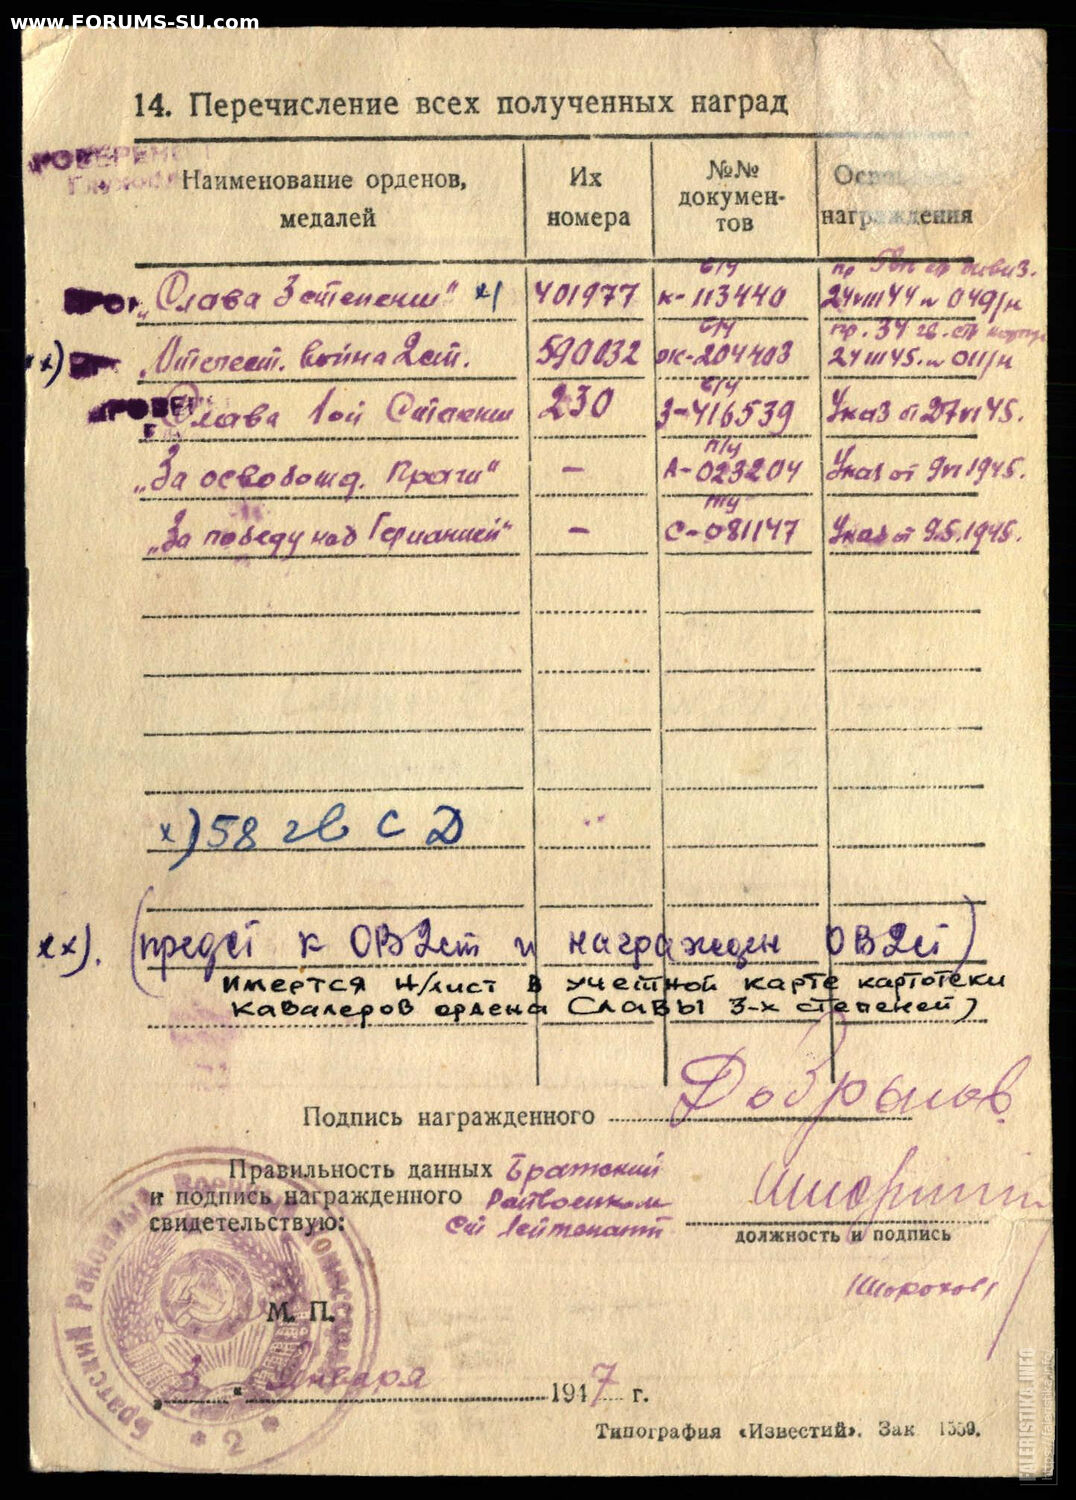 www.FORUMS-SU.com
14. Перечисление всех полученных наград
Наименование орденов, медалей
Их номера
№№ документов
Основание награждения
„Слава 3 степени" х) 401977 к-113440 24 VIII 44 № 049/н
хх) „Отечест. война 2 ст. 590032 204403 пр. 34 гв. ст. 24 III 45. № 011/н
Слава 1ой Степени 230 З-416539 Указ от 27 VI 45.
„За освобожд. Праги" — А-023204 Указ от 9 VI 1945.
„За победу над Германией" — С-081147 Указ от 9.5.1945.
х) 58 гв С Д
хх). (предст к ОВ 2 ст и награжден ОВ 2 ст)
имеется н/лист в учетной карте картотеки
кавалеров ордена Славы 3-х степеней)
Подпись награжденного
Правильность данных Братский
и подпись награжденного Райвоенком
свидетельствую: Ст лейтенант
должность и подпись
М. П.
Братский Районный Военный Комиссариат
* 2 *
„ 3 " Января 1947 г.
Типография «Известий». Зак 1559.
FALERISTIKA.INFO